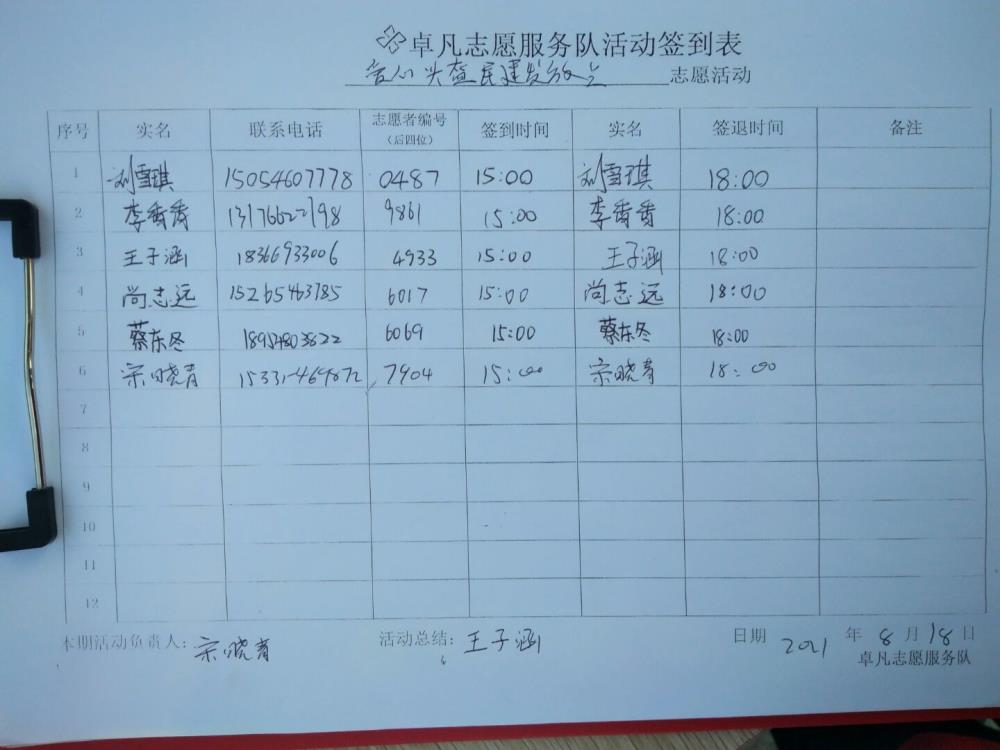 卓凡志愿服务队活动签到表
爱心头盔民建发放点 志愿活动
序号 实名 联系电话 志愿者编号（后四位） 签到时间 实名 签退时间 备注
1 刘雪琪 15054607778 0487 15:00 刘雪琪 18:00
2 李香香 9861 15:00 李香香 18:00
3 王子涵 18366933006 4933 15:00 王子涵 18:00
4 尚志远 15265463785 6017 15:00 尚志远 18:00
5 蔡东冬 6069 15:00 蔡东冬 18:00
6 宗晓青 7904 15:00 宗晓青 18:00
7
8
9
10
11
12
本期活动负责人: 宗晓青 活动总结: 王子涵 日期 2021 年 8 月 18 日
卓凡志愿服务队